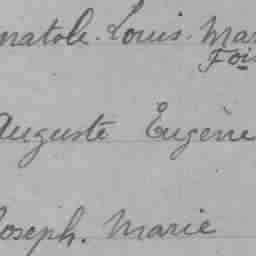 natole. Louis. Mar
Fois
Auguste Eugène
Joseph. Marie